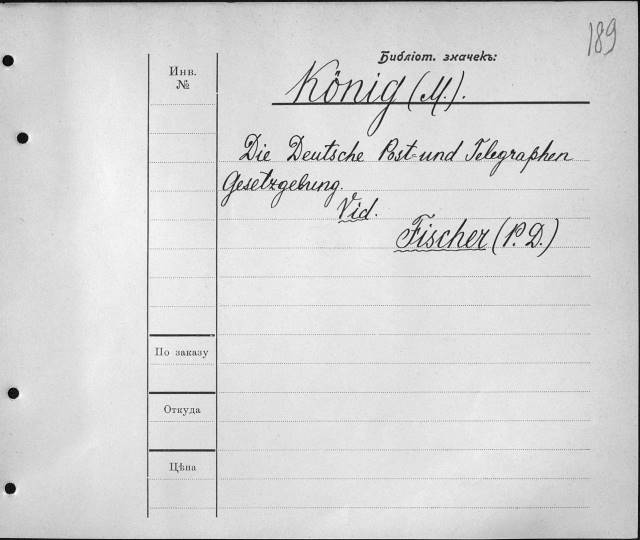 189
Библіот. значекъ:
Инв.
№
König (M.).
Die Deutsche Post- und Telegraphen
Gesetzgebung.
Vid.
Fischer (P. D.)
По заказу
Откуда
Цѣна